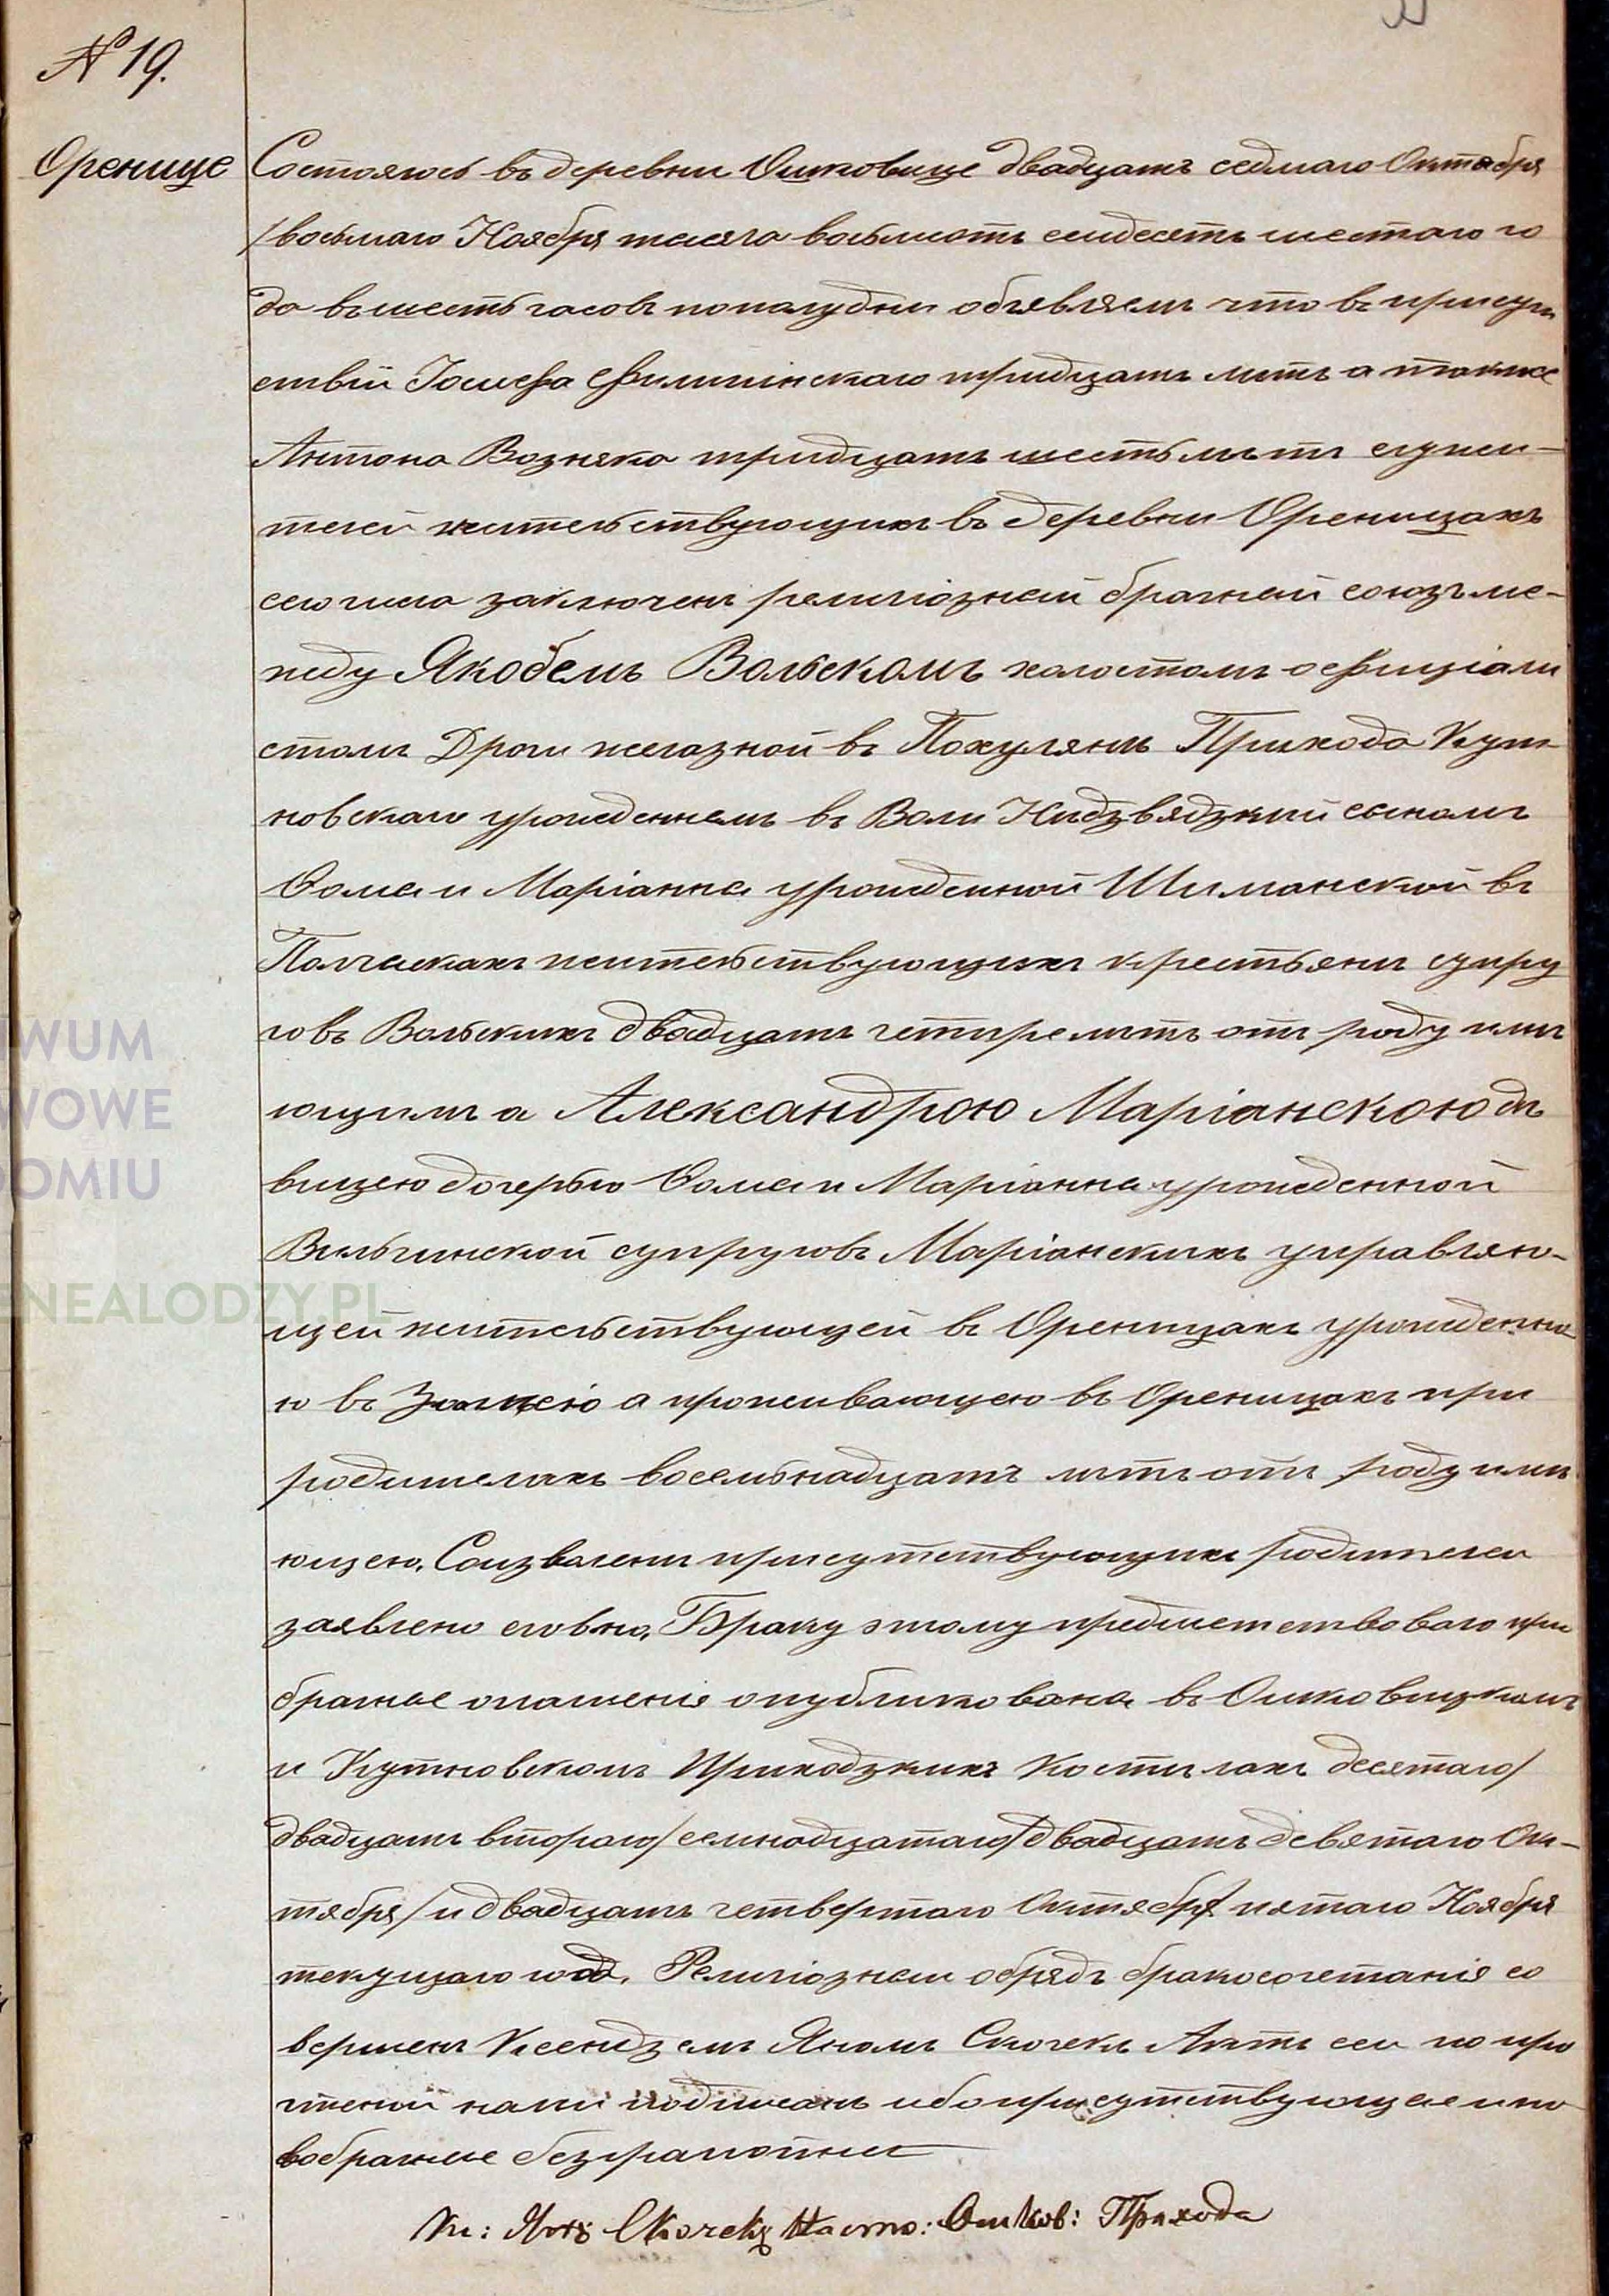 № 19.
Оренице
Состоялось въ деревни Ошковице двадцать седмаго Октября
/восьмаго Ноября тысяча восьмсотъ семдесятъ шестаго го
да въ шесть часовъ пополудни объявляемъ что въ присут
ствіи Іосифа Филипінскаго тридцать лѣтъ а также
Антона Возняка тридцать шесть лѣтъ служи-
телей жительствующихъ въ деревни Ореницахъ
сего числа заключенъ религіозный брачный союзъ ме-
жду Якобемъ Вольскомъ холостомъ офиціали
стомъ Дроги желѣзной въ Прихода Кут
новскаго урожденнымъ въ Воли Нидзвядзкий сыномъ
Ѳомы и Маріанны урожденной Шиманской въ
жительствующихъ крестьянъ супру
говъ Вольскихъ двадцать четыре лѣтъ отъ роду имѣ
ющимъ а Александрою Маріанскою дѣ
вицею дочерью Ѳомы и Маріанны урожденной
Вильчинской супруговъ Маріанскихъ управляю-
щей жительствующей въ Ореницахъ урожденно
ю въ а проживающею въ Ореницахъ при
родителяхъ восемьнадцать лѣтъ отъ роду имѣ
ющею. Соизволени присутствующихъ родителей
заявлено словно. Браку этому предшествовало при
брачные оглашенія опубликованы въ Ошковицкомъ
и Кутновскомъ Приходзкихъ Костѣлахъ десятаго/
двадцать втораго/семнадцатаго/двадцать девятаго Ок-
тября/и двадцать четвертаго Октября/пятаго Ноября
текущаго года. Религіозный обрядъ бракосочетанія со
вершенъ Ксендземъ Яномъ Скочекъ Актъ сей по про
чтеніи нами подписанъ ибо присутствующіе и но
вобрачные безграмотны
Кс: Янъ Скочекъ Насто: Ошков: Прихода